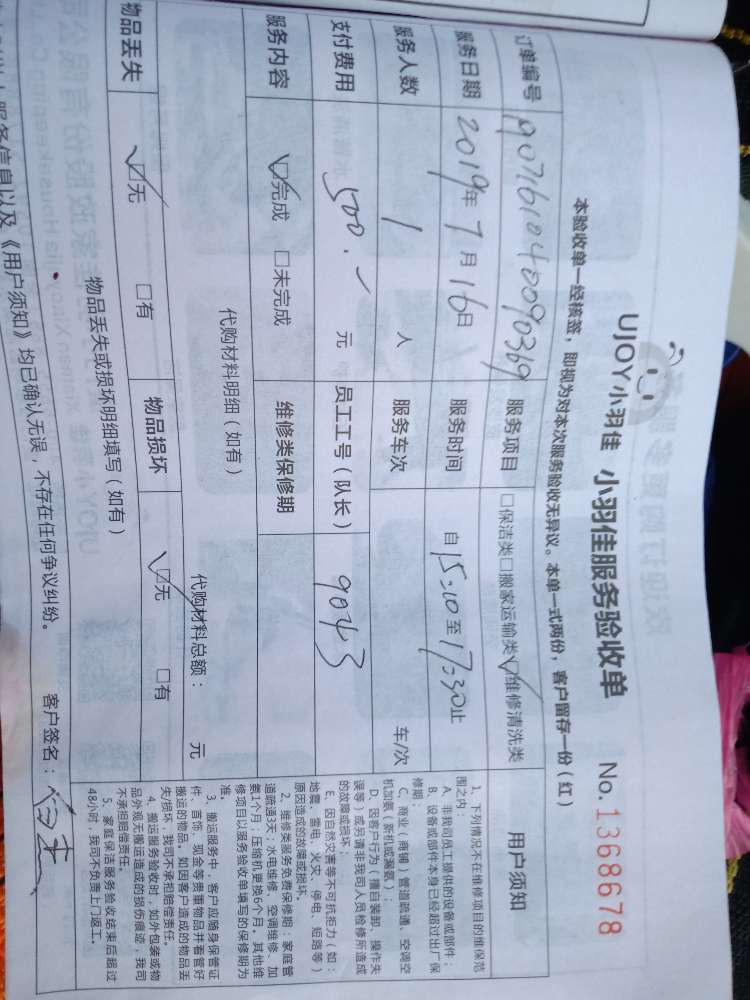 UJOY小羽佳 小羽佳服务验收单 No. 1368678
本验收单一经核签，即视为对本次服务验收无异议。本单一式两份，客户留存一份（红）
订单编号 1907161040090369 服务项目 □保洁类□搬家运输类☑维修清洗类
服务日期 2019年7月16日 服务时间 自15:10至17:30止
服务人数 1 人 服务车次 车/次
支付费用 500. 元 员工工号（队长） 9043
服务内容 ☑完成 □未完成 维修类保修期
代购材料明细（如有） 代购材料总额： 元
物品丢失 ☑无 □有 物品损坏 ☑无 □有
物品丢失或损坏明细填写（如有）
服务信息以及《用户须知》均已确认无误，不存在任何争议纠纷。 客户签名：
用户须知
1、下列情况不在维修项目的维保范
围之内
A、非我司员工提供的设备或部件；
B、设备或部件本身已经超过出厂保
修期；
C、商业（商铺）管道疏通、空调空
机加氨（新机或漏氨）；
D、因客户行为（擅自装卸、操作失
误等）或另请非我司人员检修所造成
的故障或损坏；
E、因自然灾害等不可抗拒力（如：
地震、雷电、火灾、停电、短路等）
原因造成的故障或损坏。
2、维修类服务免费保修期：家庭管
道疏通3天；水电维修、空调维修、加
氨1个月；压缩机更换6个月。其他维
修项目以服务验收单填写的保修期为
准
3、搬运服务中，客户应随身保管证
件、首饰、现金等贵重物品并看管好
搬运的物品。如因客户造成的物品丢
失/损坏，我司不承担赔偿责任。
4、搬运服务验收时，如外包装或物
品外观无搬运造成的损伤痕迹，我司
不承担赔偿责任。
5、家庭保洁服务验收结束后超过
48小时，我司不负责上门返工。